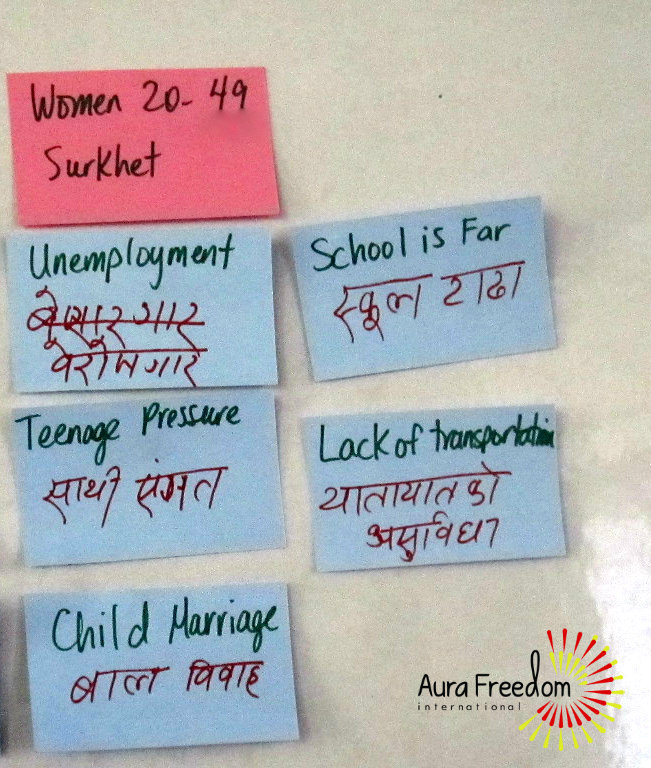 Women 20-49
Surkhet
Unemployment
बेरोजगार
School is Far
स्कूल टाढा
Teenage Pressure
साथी संगत
Lack of transportation
यातायातको
असुविधा
Child Marriage
बाल विवाह
Aura Freedom
international